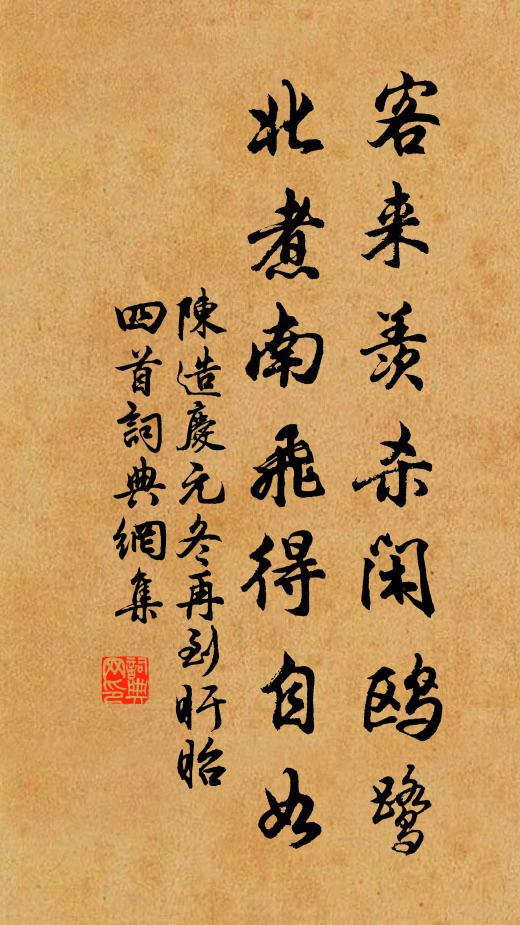 客来羡杀闲鸥鹭
北煮南飛得自如
陳造慶元冬再到盱眙
四首詞典網集
詞典網印